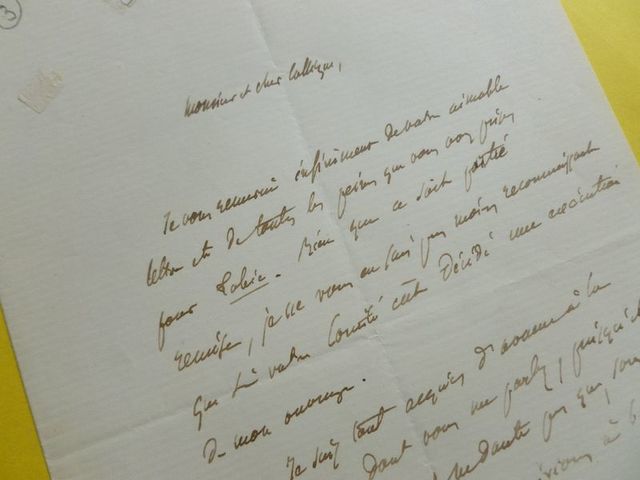 3
Monsieur et cher Collègue,
Je vous remercie infiniment de votre aimable
lettre et de toutes les peines que vous avez prises
pour Lobie. Bien que ce soit partie
remise, je ne vous en suis pas moins reconnaissant
que si votre Comité eût décidé une exécution
de mon ouvrage.
Je suis tout acquis d'avance à la
dont vous me parlez, puisqu'
pas que,
à